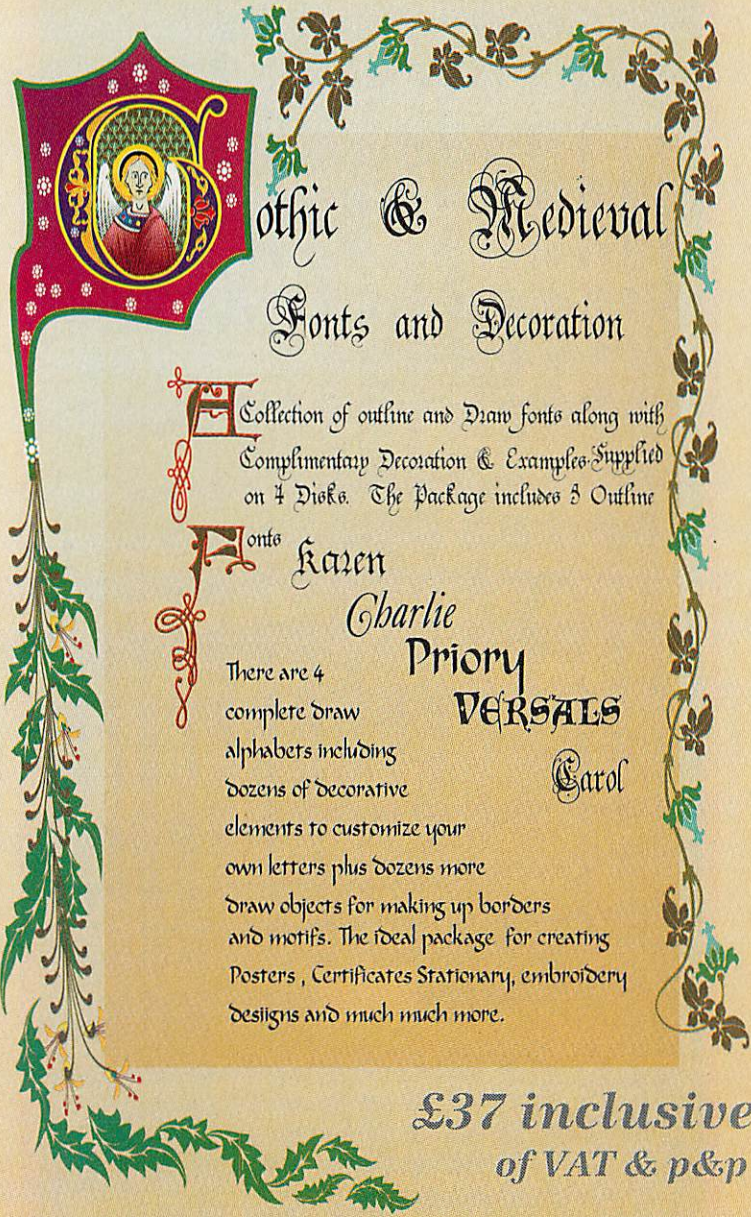 Gothic & Medieval
Fonts and Decoration
A Collection of outline and Draw fonts along with
Complimentary Decoration & Examples. Supplied
on 4 Disks. The Package includes 5 Outline
Fonts
Karen
Charlie
Priory
VERSALS
Carol
There are 4
complete draw
alphabets including
dozens of decorative
elements to customize your
own letters plus dozens more
draw objects for making up borders
and motifs. The ideal package for creating
Posters , Certificates Stationary, embroidery
desiigns and much much more.
£37 inclusive
of VAT & p&p